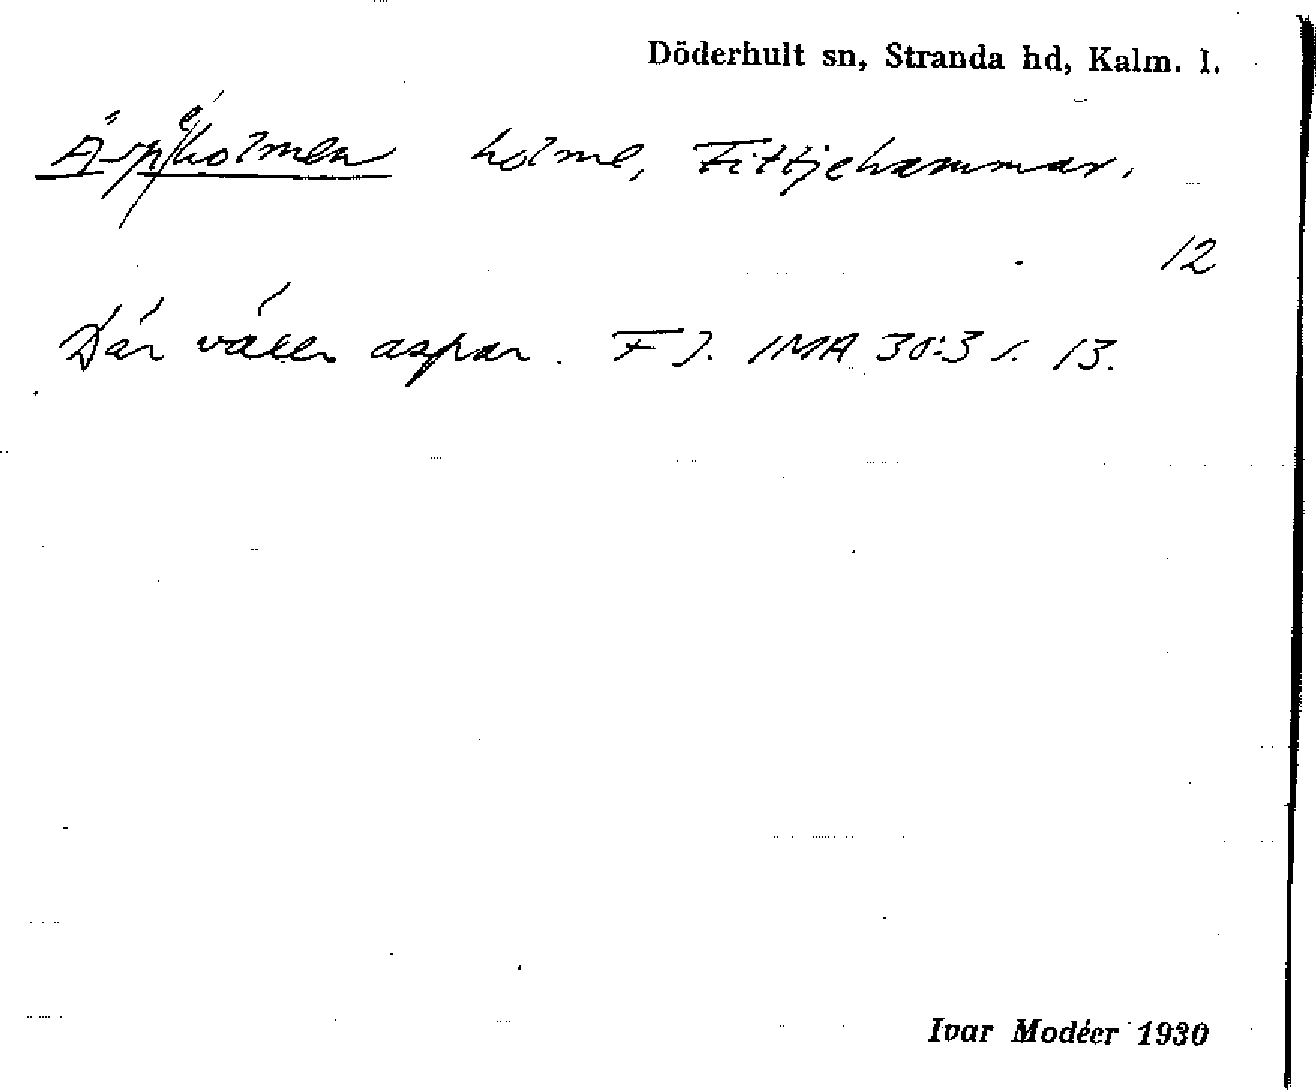 Döderhult sn, Stranda hd, Kalm. l.
Äspeholmen holme, Fittjehammar.
12
Där växer aspar. FJ. IMA 30:3 s. 13.
Ivar Modéer 1930